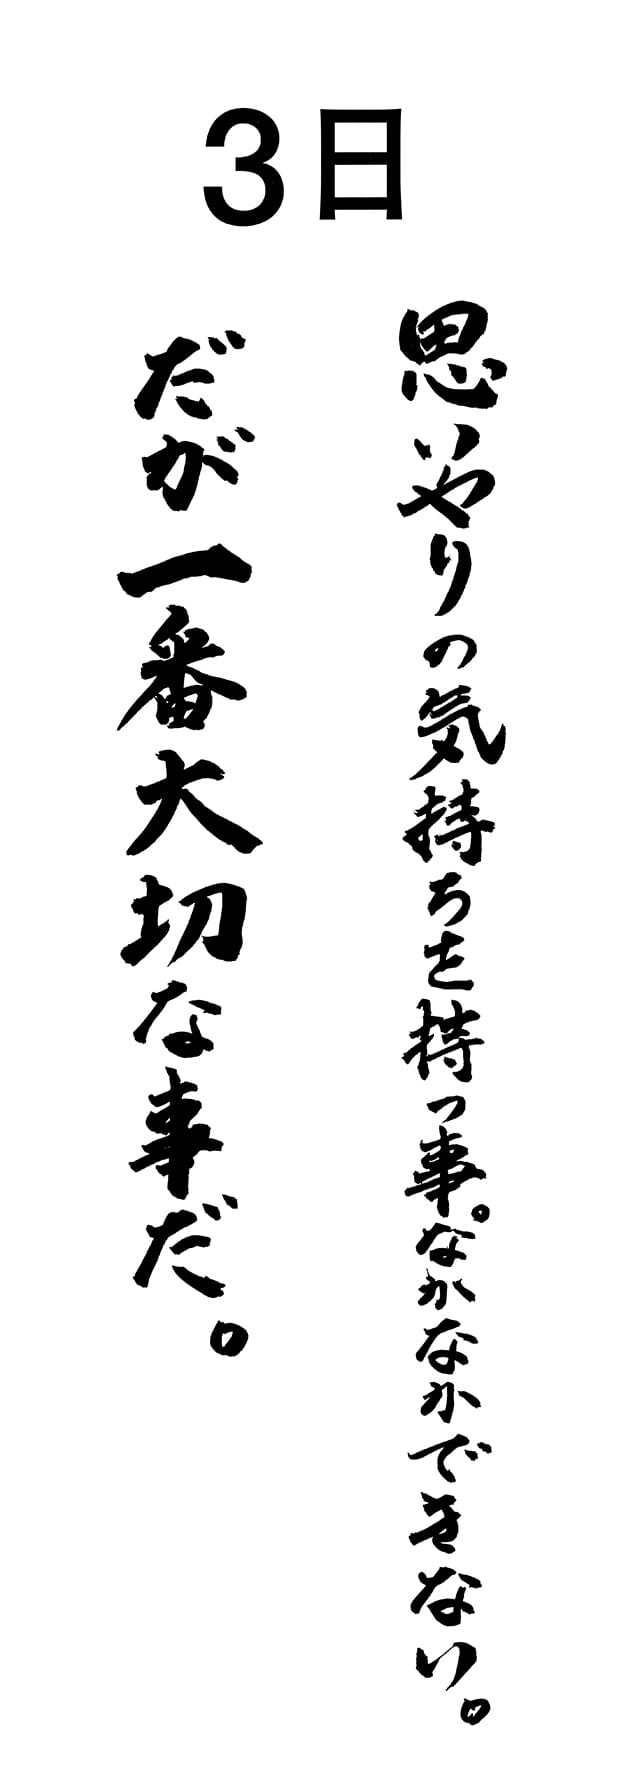 3日
思いやりの気持ちを持つ事。なかなかできない。
だが一番大切な事だ。